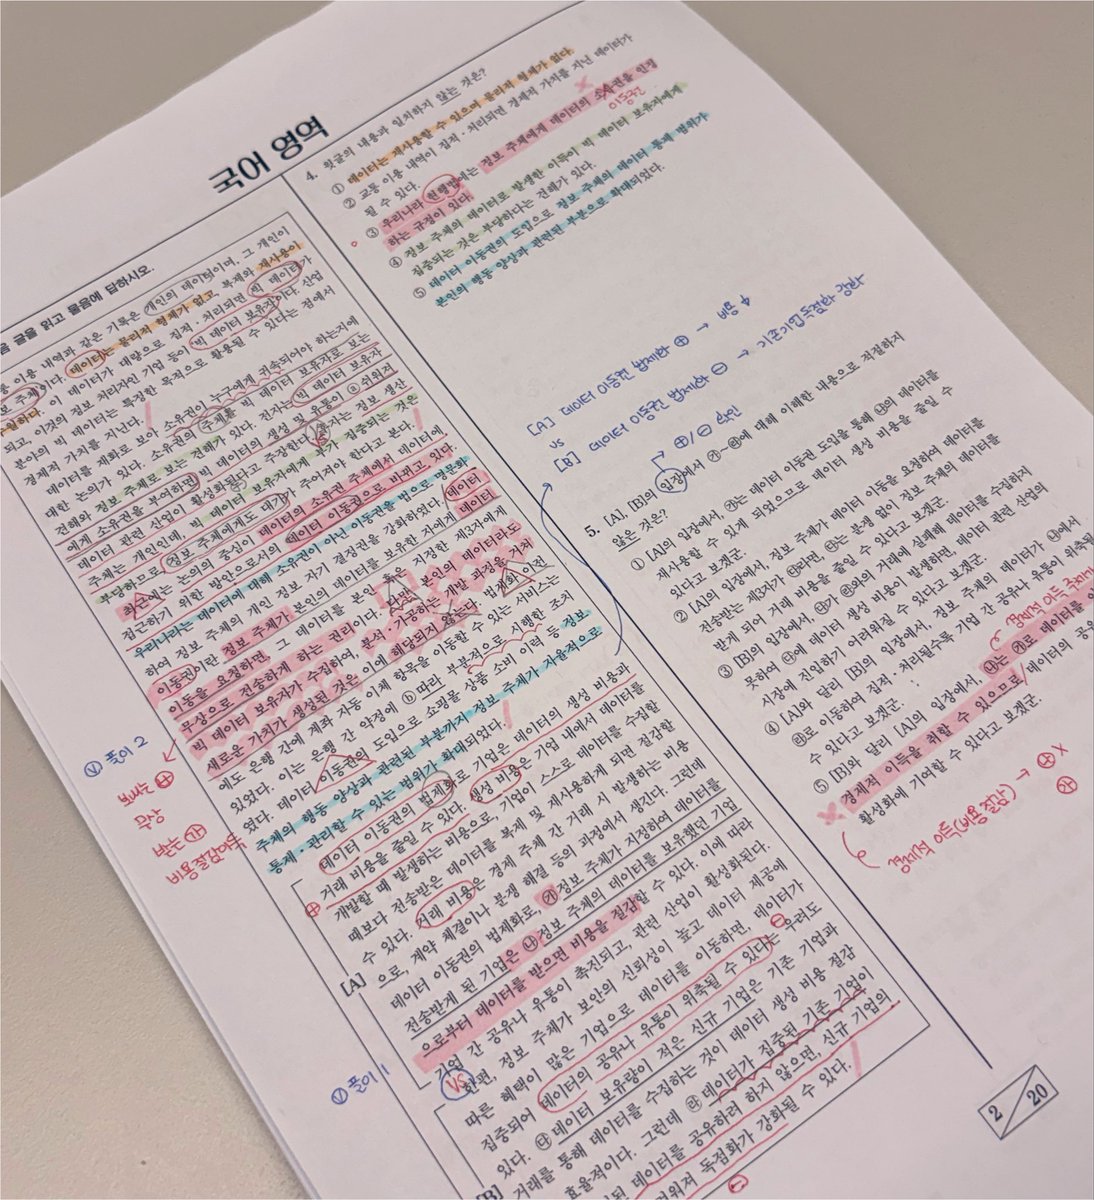 국어 영역
글을 읽고 물음에 답하시오.
이용 내역과 같은 기록은 개인의 데이터이며, 그 개인이
주체이다. 데이터는 물리적 형체가 없고, 복제와 재사용이
이 데이터가 대량으로 집적·처리되면 빅 데이터가
되고, 이것의 정보 처리자인 기업 등이 '빅 데이터 보유자'이다. 산업
분야의 빅 데이터는 특정한 목적으로 활용될 수 있다는 점에서
경제적 가치를 지닌다.
데이터를 재화로 보아 소유권이 누구에게 귀속되어야 하는지에
대한 논의가 있다. 소유권의 주체를 빅 데이터 보유자로 보는
견해와 정보 주체로 보는 견해가 있다. 전자는 빅 데이터 보유자
에게 소유권을 부여하면 빅 데이터의 생성 및 유통이 ⓐ 쉬워져
데이터 관련 산업이 활성화된다고 주장한다. 후자는 정보 생산
주체는 개인인데, 빅 데이터 보유자에게 부가 집중되는 것은
부당하므로, 정보 주체에게도 대가가 주어져야 한다고 본다.
최근에는 논의의 중심이 데이터의 소유권 주체에서 데이터에
접근하기 위한 방안으로서의 데이터 이동권으로 바뀌고 있다.
우리나라는 데이터에 대해 소유권이 아닌 이동권을 법으로 명문화
하여 정보 주체의 개인 정보 자기 결정권을 강화하였다. 데이터
이동권이란 정보 주체가 본인의 데이터를 보유한 자에게 데이터
이동을 요청하면, 그 데이터를 본인 혹은 지정한 제3자에게
무상으로 전송하게 하는 권리이다. 다만, 본인의 데이터라도
빅 데이터 보유자가 수집하여, 분석·가공하는 개발 과정을 거쳐
새로운 가치가 생성된 것은 이에 해당되지 않는다. 법제화 이전
에도 은행 간에 계좌 자동 이체 항목을 이동할 수 있는 서비스는
있었다. 이는 은행 간 약정에 ⓑ 따라 부분적으로 시행한 조치
였다. 데이터 이동권의 도입으로 쇼핑몰 상품 소비 이력 등 정보
주체의 행동 양상과 관련된 부분까지 정보 주체가 자율적으로
통제·관리할 수 있는 범위가 확대되었다.
데이터 이동권의 법제화로 기업은 데이터의 생성 비용과
거래 비용을 줄일 수 있다. 생성 비용은 기업 내에서 데이터를
개발할 때 발생하는 비용으로, 기업이 스스로 데이터를 수집할
때보다 전송받은 데이터를 복제 및 재사용하게 되면 절감할
수 있다. 거래 비용은 경제 주체 간 거래 시 발생하는 비용
으로, 계약 체결이나 분쟁 해결 등의 과정에서 생긴다. 그런데
데이터 이동권의 법제화로, ㉮ 정보 주체가 지정하여 데이터를
전송받게 된 기업은 ㉯ 정보 주체의 데이터를 보유했던 기업
으로부터 데이터를 받으면 비용을 절감할 수 있다. 이에 따라
[A] 기업 간 공유나 유통이 촉진되고, 관련 산업이 활성화된다.
vs
한편, 정보 주체가 보안의 신뢰성이 높고 데이터 제공에
따른 혜택이 많은 기업으로 데이터를 이동하면, 데이터가
집중되어 데이터의 공유나 유통이 위축될 수 있다는 우려도
있다. ㉰ 데이터 보유량이 적은 신규 기업은 기존 기업과
거래를 통해 데이터를 수집하는 것이 데이터 생성 비용 절감
효율적이다. 그런데 ㉱ 데이터가 집중된 기존 기업이
된 데이터를 공유하려 하지 않으면, 신규 기업의
[B] 려워져 독점화가 강화될 수 있다.
ⓥ 풀이 2
보내는 ⊕
무상
받는 ㉮
비용절감이득
ⓥ 풀이 1
4. 윗글의 내용과 일치하지 않는 것은?
① 데이터는 재사용할 수 있으며 물리적 형체가 없다.
② 교통 이용 내역이 집적·처리되면 경제적 가치를 지닌 데이터가
될 수 있다.
③ 우리나라 현행법에는 정보 주체에게 데이터의 소유권을 인정
하는 규정이 있다.
이동권
④ 정보 주체의 데이터로 발생한 이득이 빅 데이터 보유자에게
집중되는 것은 부당하다는 견해가 있다.
⑤ 데이터 이동권의 도입으로 정보 주체의 데이터 통제 범위가
본인의 행동 양상과 관련된 부분으로 확대되었다.
[A] 데이터 이동권 법제화 ⊕ → 비용↓
vs
[B] 데이터 이동권 법제화 ⊖ → 기존기업 독점화 강화
⊕/⊖ 확인
5. [A], [B]의 입장에서 ㉮~㉱에 대해 이해한 내용으로 적절하지
않은 것은?
① [A]의 입장에서, ㉮는 데이터 이동권 도입을 통해 ㉯의 데이터를
재사용할 수 있게 되었으므로 데이터 생성 비용을 줄일 수
있다고 보겠군.
② [A]의 입장에서, 정보 주체가 데이터 이동을 요청하여 데이터를
전송받는 제3자가 ㉰라면, ㉰는 분쟁 없이 정보 주체의 데이터를
받게 되어 거래 비용을 줄일 수 있다고 보겠군.
③ [B]의 입장에서, ㉰가 ㉱와의 거래에 실패해 데이터를 수집하지
못하여 ㉰에 데이터 생성 비용이 발생하면, 데이터 관련 산업의
시장에 진입하기 어려워질 수 있다고 보겠군.
④ [A]와 달리 [B]의 입장에서, 정보 주체의 데이터가 ㉯에서
㉱로 이동하여 집적·처리될수록 기업 간 공유나 유통이 위축될
수 있다고 보겠군.
경제적 이득 주체
⑤ [B]와 달리 [A]의 입장에서, ㉯는 ㉮로 데이터를
경제적 이득을 취할 수 있으므로 데이터의 공유
활성화에 기여할 수 있다고 보겠군.
경제적 이득(비용 절감) → ⊕ X
㉮
2 / 20